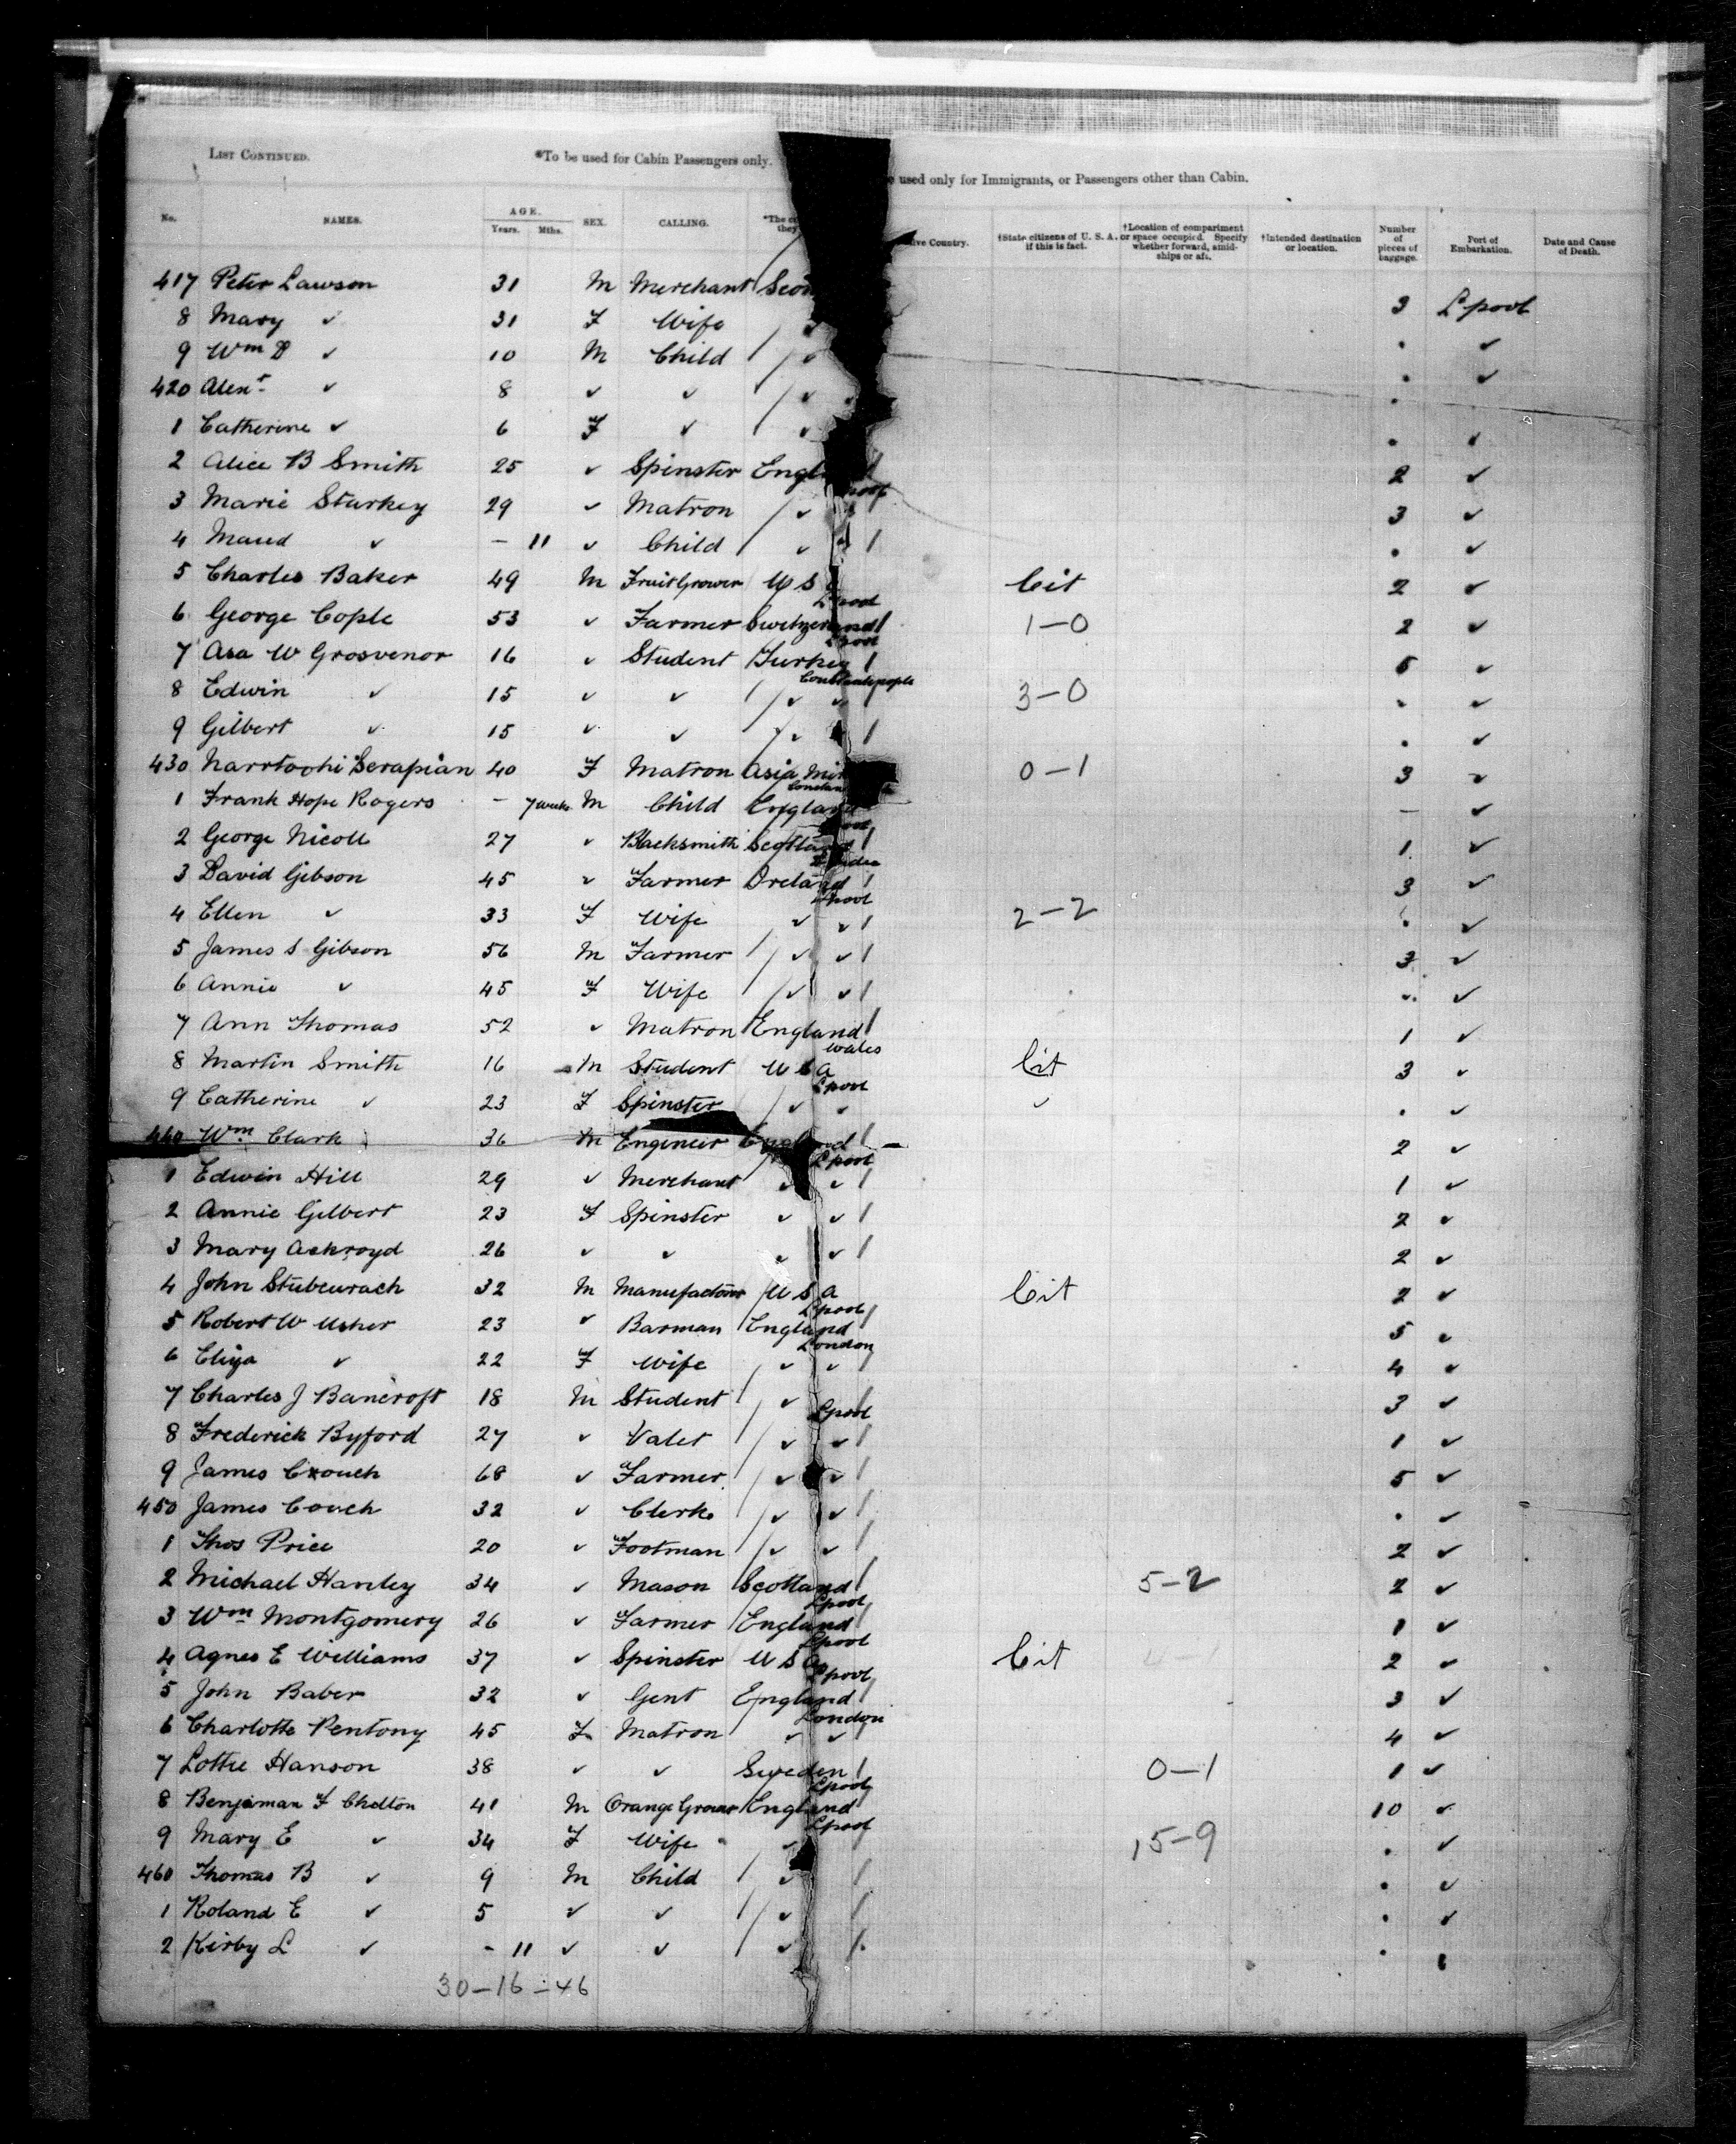 LIST CONTINUED. *To be used for Cabin Passengers only. used only for Immigrants, or Passengers other than Cabin.
No. NAMES. AGE. Years. Mths. SEX. CALLING. *The they Country. †State citizens of U. S. A. if this is fact. †Location of compartment or space occupied. Specify whether forward, amidships or aft. †Intended destination or location. Number of pieces of baggage. Port of Embarkation. Date and Cause of Death.
417 Peter Lawson 31 M Merchant 3 L'pool
8 Mary ✓ 31 F Wife ✓ . ✓
9 Wm D ✓ 10 M Child ✓ . ✓
420 Alexr ✓ 8 ✓ ✓ ✓ .
1 Catherine ✓ 6 F ✓ ✓ . ✓
2 Alice B Smith 25 ✓ Spinster 2 ✓
3 Marie Sturkey 29 ✓ Matron ✓ 3 ✓
4 Maud ✓ – 11 ✓ Child ✓ . ✓
5 Charles Baker 49 M Fruit Grower U S Cit 2 ✓
L'pool
6 George Cople 53 ✓ Farmer Switzerland 1–0 2 ✓
L'pool
7 Asa W Grosvenor 16 ✓ Student Turkey 5 ✓
Constantinople
8 Edwin ✓ 15 ✓ ✓ ✓ ✓ 3–0 . ✓
9 Gilbert ✓ 15 ✓ ✓ ✓ . ✓
430 Serapian 40 F Matron Asia 0–1 3 ✓
1 Frank Hope Rogers – 7 weeks M Child England – ✓
2 George Nicoll 27 ✓ Blacksmith Scotland 1 ✓
Dundee
3 David Gibson 45 ✓ Farmer Ireland 3 ✓
L'pool
4 Ellen ✓ 33 F Wife ✓ ✓ 2–2 . ✓
5 James S Gibson 56 M Farmer ✓ ✓ 3 ✓
6 Annie ✓ 45 F Wife ✓ ✓ . ✓
7 Ann Thomas 52 ✓ Matron England 1 ✓
Wales
8 Martin Smith 16 M Student U S A Cit 3 ✓
L'pool
9 Catherine ✓ 23 F Spinster ✓ ✓ ✓ . ✓
440 Wm Clark 36 M Engineer England 2 ✓
L'pool
1 Edwin Hill 29 ✓ Merchant ✓ ✓ 1 ✓
2 Annie Gilbert 23 F Spinster ✓ ✓ 2 ✓
3 Mary Ackroyd 26 ✓ ✓ ✓ ✓ 2 ✓
4 John Stubenrach 32 M Manufacturer U S A Cit 2 ✓
L'pool
5 Robert W Usher 23 ✓ Barman England 5 ✓
London
6 Eliza ✓ 22 F Wife ✓ ✓ 4 ✓
7 Charles J Bancroft 18 M Student ✓ L'pool 3 ✓
8 Frederick Byford 27 ✓ Valet ✓ ✓ 1 ✓
9 James Crouch 68 ✓ Farmer ✓ ✓ 5 ✓
450 James Couch 32 ✓ Clerk ✓ ✓ . ✓
1 Thos Price 20 ✓ Footman ✓ ✓ 2 ✓
2 Michael Hanley 34 ✓ Mason Scotland 5–2 2 ✓
L'pool
3 Wm Montgomery 26 ✓ Farmer England 1 ✓
L'pool
4 Agnes E Williams 37 ✓ Spinster U S A Cit 2 ✓
L'pool
5 John Baber 32 ✓ Gent England 3 ✓
London
6 Charlotte Pentony 45 F Matron ✓ ✓ 4 ✓
7 Lottie Hanson 38 ✓ ✓ Sweden 0–1 1 ✓
L'pool
8 Benjaman F Chelton 41 M Orange Grower England 10 ✓
L'pool
9 Mary E ✓ 34 F Wife ✓ 15–9 . ✓
460 Thomas B ✓ 9 M Child ✓ . ✓
1 Roland E ✓ 5 ✓ ✓ ✓ . ✓
2 Kirby L ✓ – 11 ✓ ✓ ✓ .
30–16–46